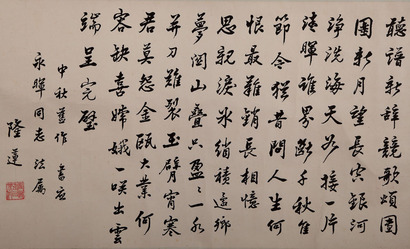 聽譜新辭競歌頌團
圞新月望長空銀河
淨洗海天各接一片
清暉誰界斷千秋佳
節今猶昔問人生何
恨最難銷長相憶
思親淚冰綃積遠鄉
夢關山疊只盈盈一水
并刀難裂玉臂宵寒
君莫怨金甌大業何
容缺喜嫦娥一笑出雲
端呈完璧
中秋舊作 書應
永暉同志 法屬
隆蓮